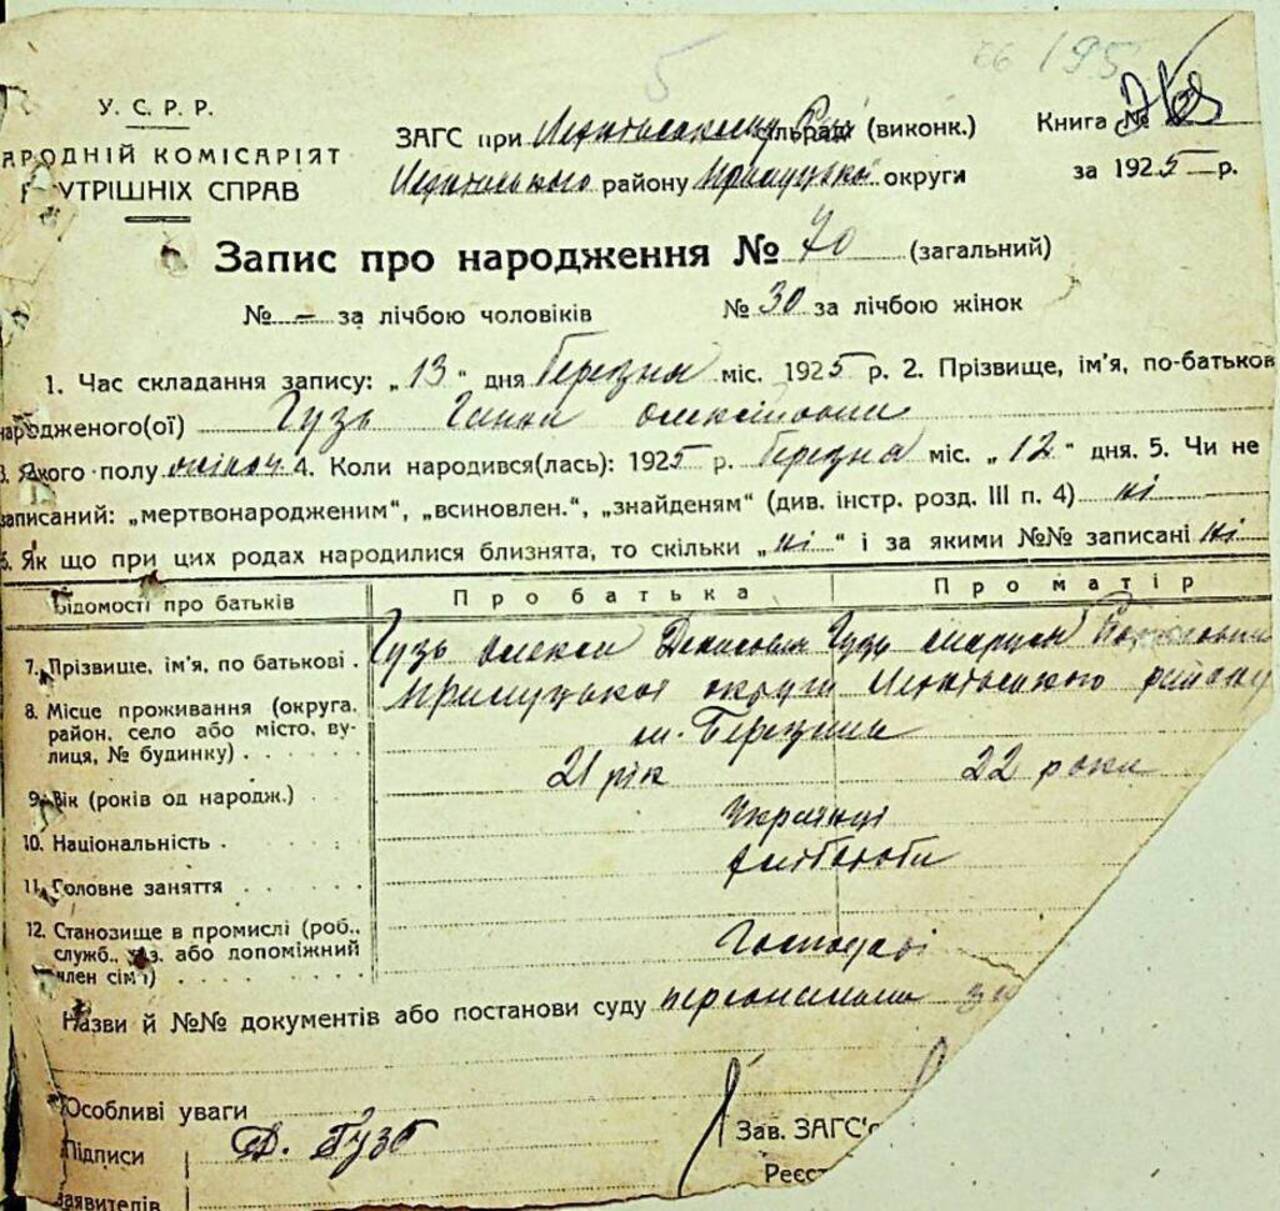 195
У. С. Р. Р.
АРОДНІЙ КОМІСАРІЯТ
УТРІШНІХ СПРАВ
ЗАГС при сільраді (виконк.)
Книга №
району Прилуцької округи
за 1925 р.
Запис про народження № 70 (загальний)
№ - за лічбою чоловіків № 30 за лічбою жінок
1. Час складання запису: „13“ дня Березня міс. 1925 р. 2. Прізвище, ім'я, по-батьков
народженого(ої) Гузь Ганна Олексіївна
3. Якого полу жіноч 4. Коли народився(лась): 1925 р. Березня міс. „12“ дня. 5. Чи не
записаний: „мертвонародженим“, „всиновлен.“, „знайденям“ (див. інстр. розд. III п. 4) ні
6. Як що при цих родах народилися близнята, то скільки „ні“ і за якими №№ записані ні
Відомості про батьків Про батька Про матір
7. Прізвище, ім'я, по батькові . Гузь Олекса Денисович Гузь Маруся
8. Місце проживання (округа, район, село або місто, вулиця, № будинку) . . Прилуцької округи району
м. Березна
9. Вік (років од народж.) 21 рік 22 роки
10. Національність . Українці
11. Головне заняття . хлібороби
12. Становище в промислі (роб., служб., хаз. або допоміжний член сім'ї) . . . . Господарі
Назви й №№ документів або постанови суду персональна
Особливі уваги
Підписи Д. Гузь
Зав. ЗАГС'о
Реєст
заявителів